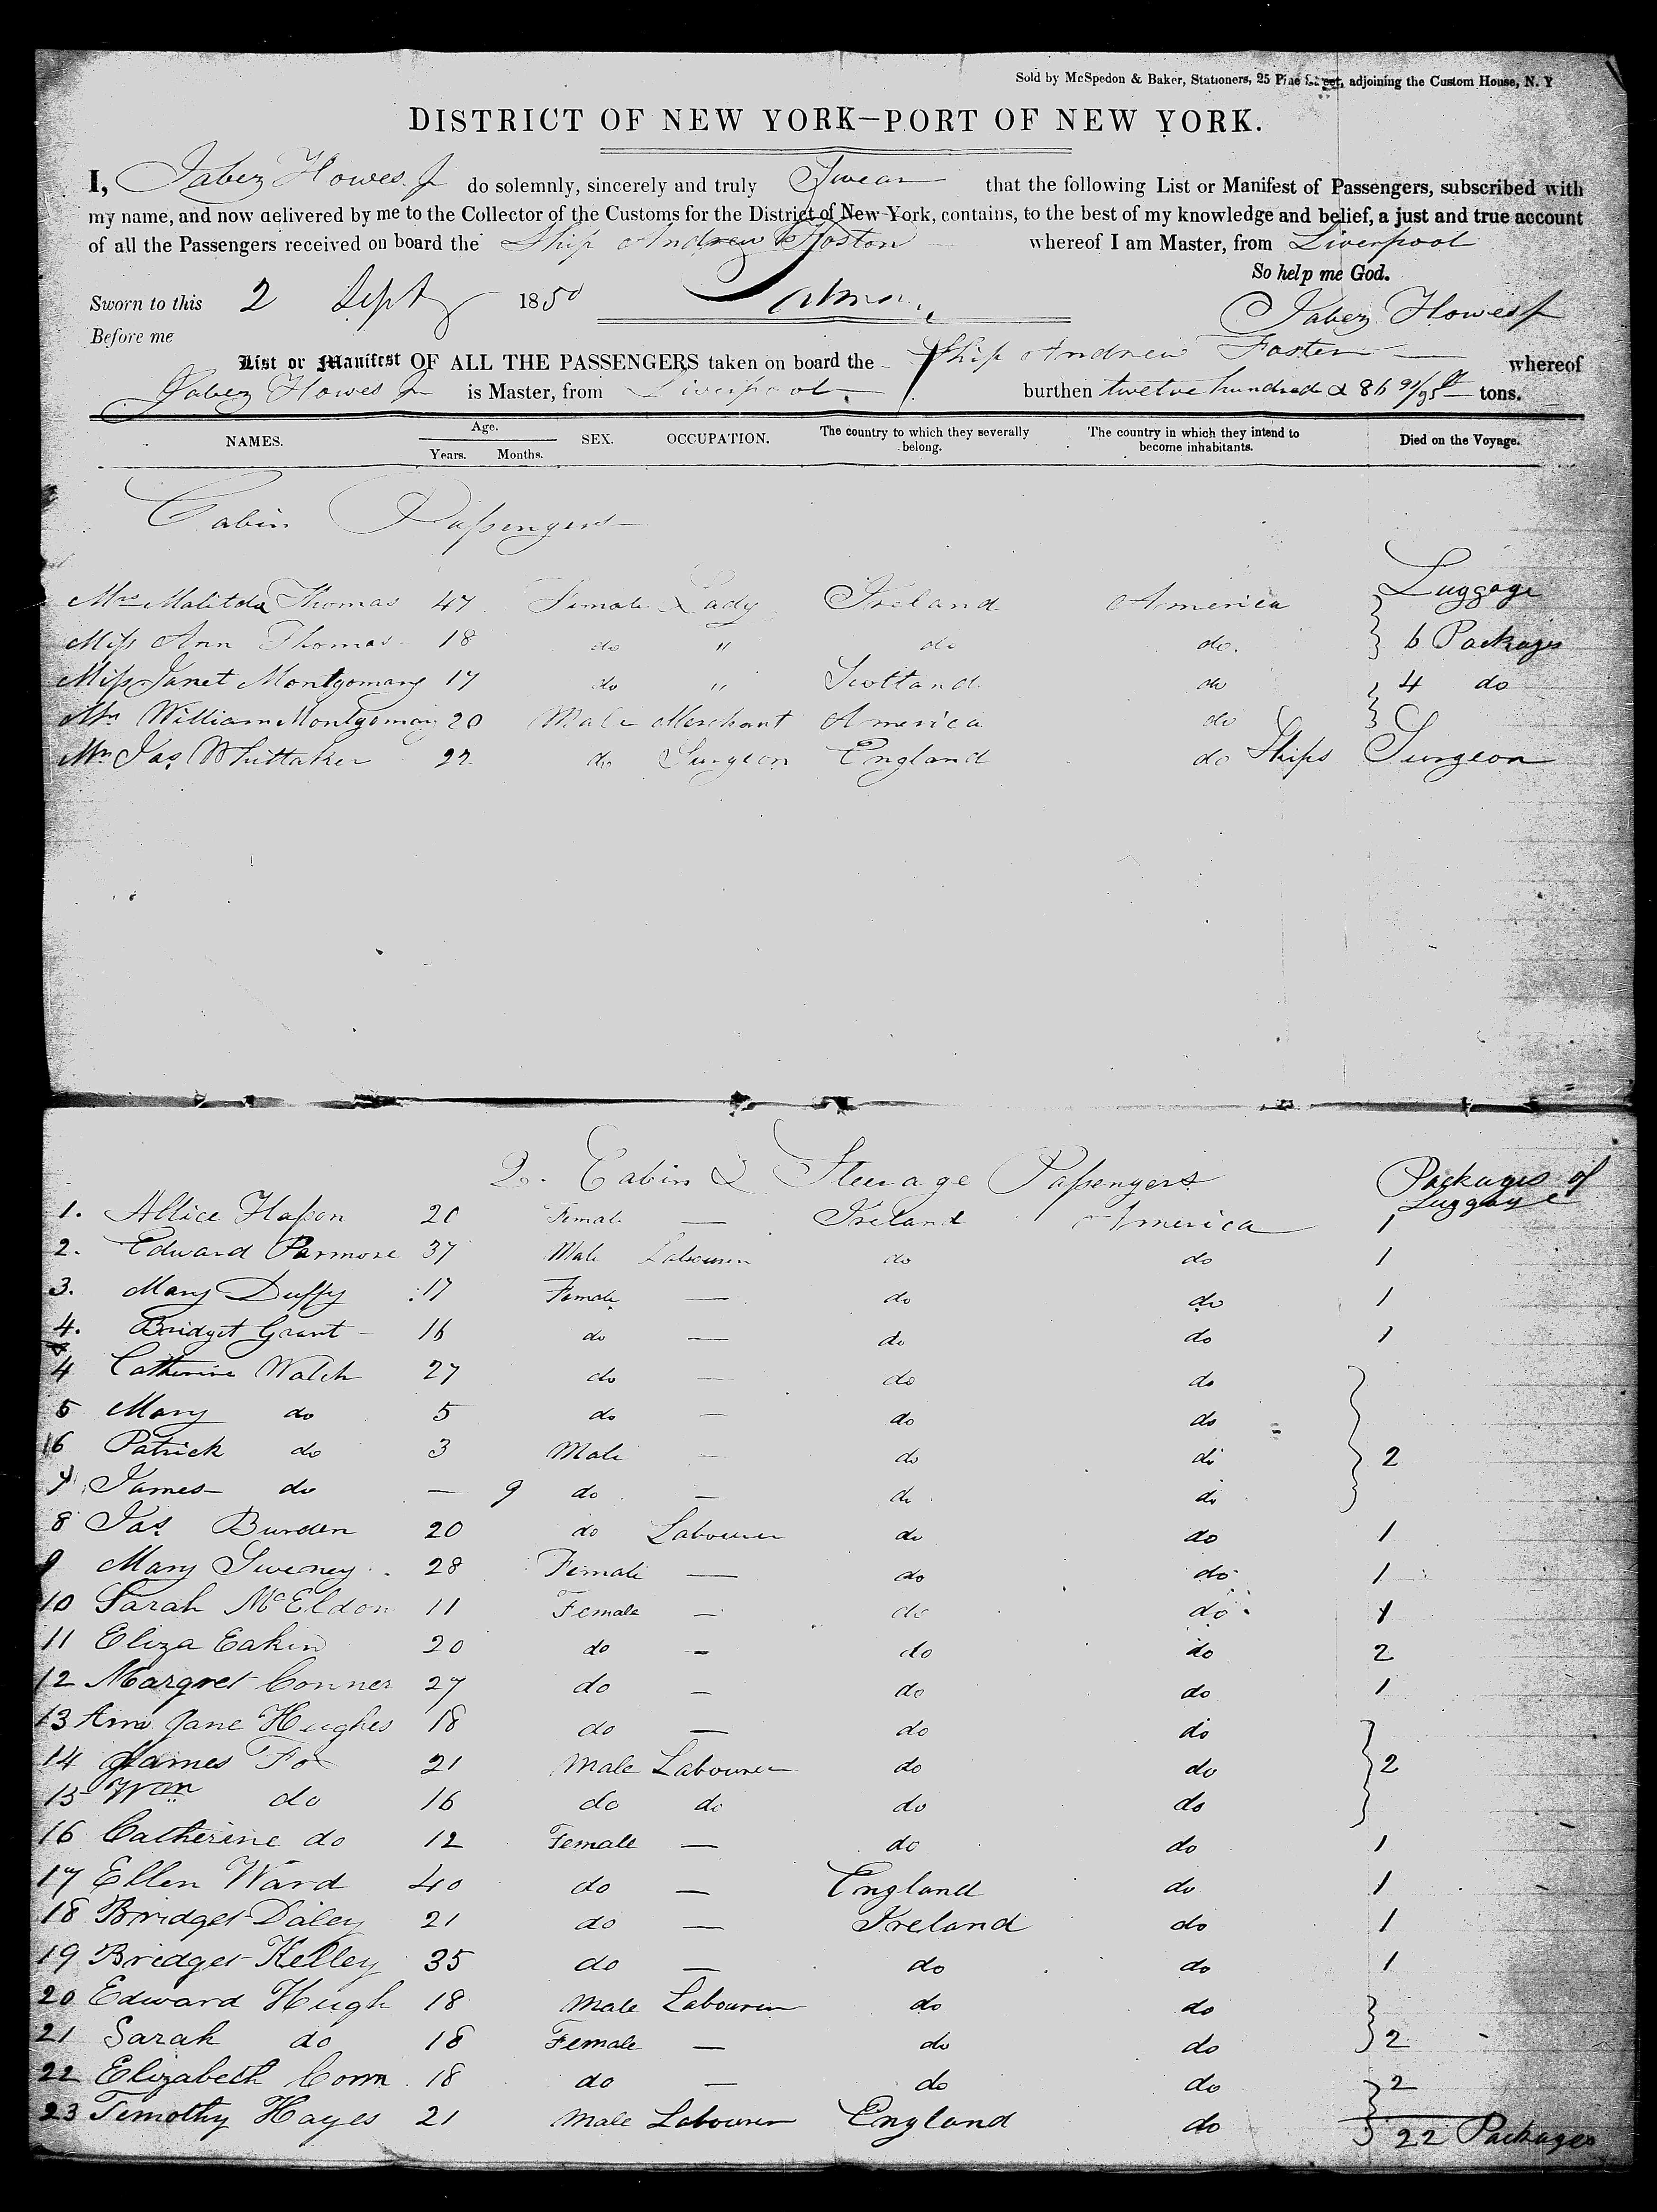 Sold by McSpedon & Baker, Stationers, 25 Pine Street, adjoining the Custom House, N. Y
DISTRICT OF NEW YORK—PORT OF NEW YORK.
I, Jabez Howes Jr do solemnly, sincerely and truly Swear that the following List or Manifest of Passengers, subscribed with
my name, and now delivered by me to the Collector of the Customs for the District of New-York, contains, to the best of my knowledge and belief, a just and true account
of all the Passengers received on board the Ship Andrew Foster whereof I am Master, from Liverpool
So help me God.
Sworn to this 2 Sept 1850
Jabez Howes Jr
Before me
List or Manifest OF ALL THE PASSENGERS taken on board the Ship Andrew Foster whereof
Jabez Howes Jr is Master, from Liverpool burthen twelve hundred & 86 91/95th tons.
NAMES. Age. Years. Months. SEX. OCCUPATION. The country to which they severally belong. The country in which they intend to become inhabitants. Died on the Voyage.
Cabin Passengers
Luggage
Mrs Malitda Thomas 47 Female Lady Ireland America
Miss Ann Thomas 18 do " do do. 6 Packages
Miss Janet Montgomary 17 do " Scotland do 4 do
Mr William Montgomary 20 Male Merchant America do
Mr Jas. Whittaker 22 do Surgeon England do Ships Surgeon
2. Cabin & Steerage Passengers Packages of Luggage
1. Allice Hasson 20 Female — Ireland America 1
2. Edward Parmore 37 Male Labourer do do 1
3. Mary Duffy 17 Female — do do 1
4. Bridget Grant 16 do — do do 1
4 Catherine Walch 27 do — do do
5 Mary do 5 do — do do
6 Patrick do 3 Male — do do 2
7 James do — 9 do — do do
8 Jas. Burden 20 do Labourer do do 1
9 Mary Sweeney 28 Female — do do 1
10 Sarah McEldon 11 Female — do do 1
11 Eliza Eakin 20 do - do do 2
12 Margret Conner 27 do — do do 1
13 Ann Jane Hughes 18 do — do do
14 James Fox 21 Male Labourer do do 2
15 Wm do 16 do do do do
16 Catherine do 12 Female — do do 1
17 Ellen Ward 40 do — England do 1
18 Bridget Daley 21 do — Ireland do 1
19 Bridget Kelley 35 do — do do 1
20 Edward Hugh 18 Male Labourer do do
21 Sarah do 18 Female — do do 2
22 Elizabeth Conn 18 do — do do 2
23 Timothy Hayes 21 Male Labourer England do
22 Packages